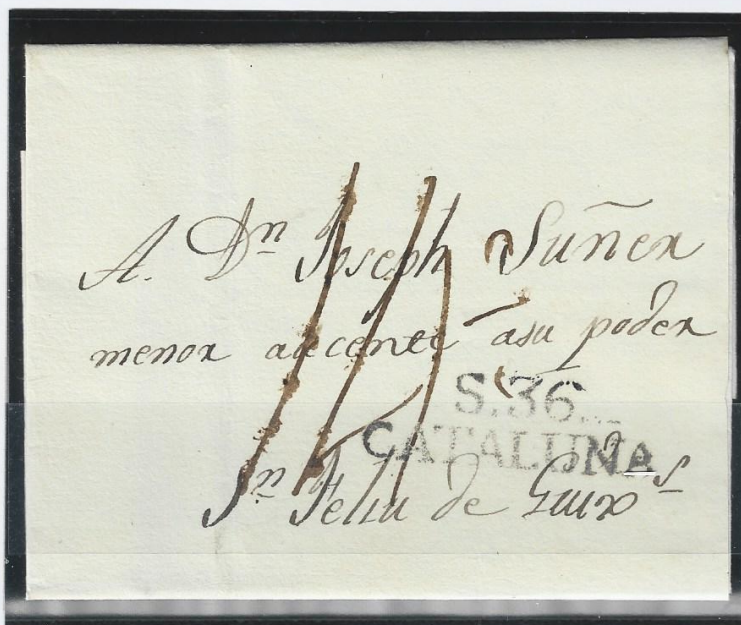 A. Dn Joseph Suñer
menor aucente asu poder
S.36.
CATALUÑA
Sn Feliu de Guixs